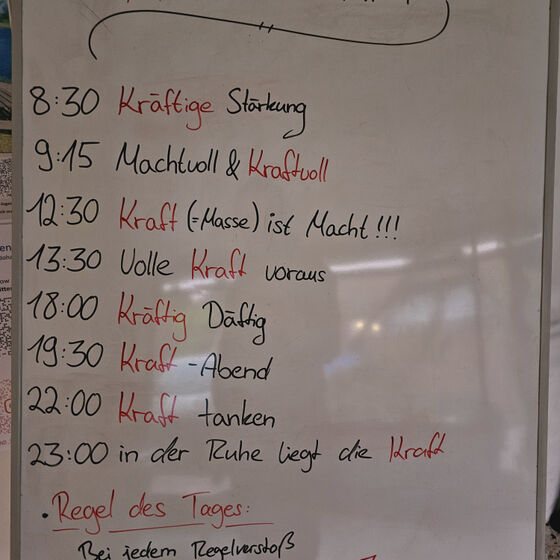 8:30 Kräftige Stärkung
9:15 Machtvoll & Kraftvoll
12:30 Kraft (=Masse) ist Macht!!!
13:30 Volle Kraft voraus
18:00 Kräftig Däftig
19:30 Kraft-Abend
22:00 Kraft tanken
23:00 in der Ruhe liegt die Kraft
• Regel des Tages:
Bei jedem Regelverstoß